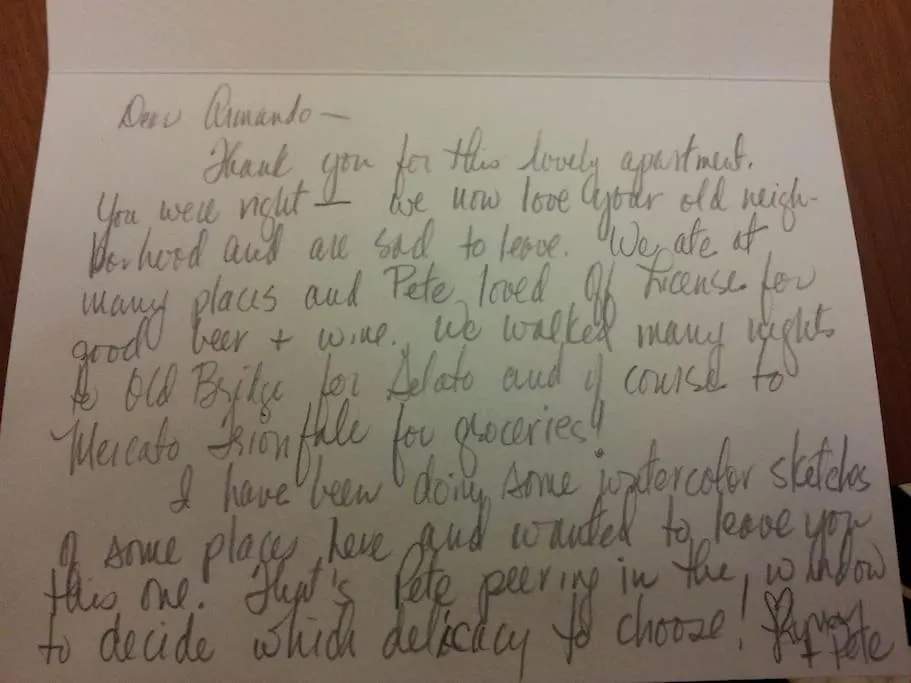 Dear Armando —
Thank you for this lovely apartment.
You were right — we now love your old neigh-
borhood and are sad to leave. We ate at
many places and Pete loved Off License for
good beer + wine. We walked many nights
to Old Bridge for Gelato and of course to
Mercato Trionfale for groceries!
I have been doing some watercolor sketches
of some places here and wanted to leave you
this one. That's Pete peering in the window
to decide which delicacy to choose!
+ Pete